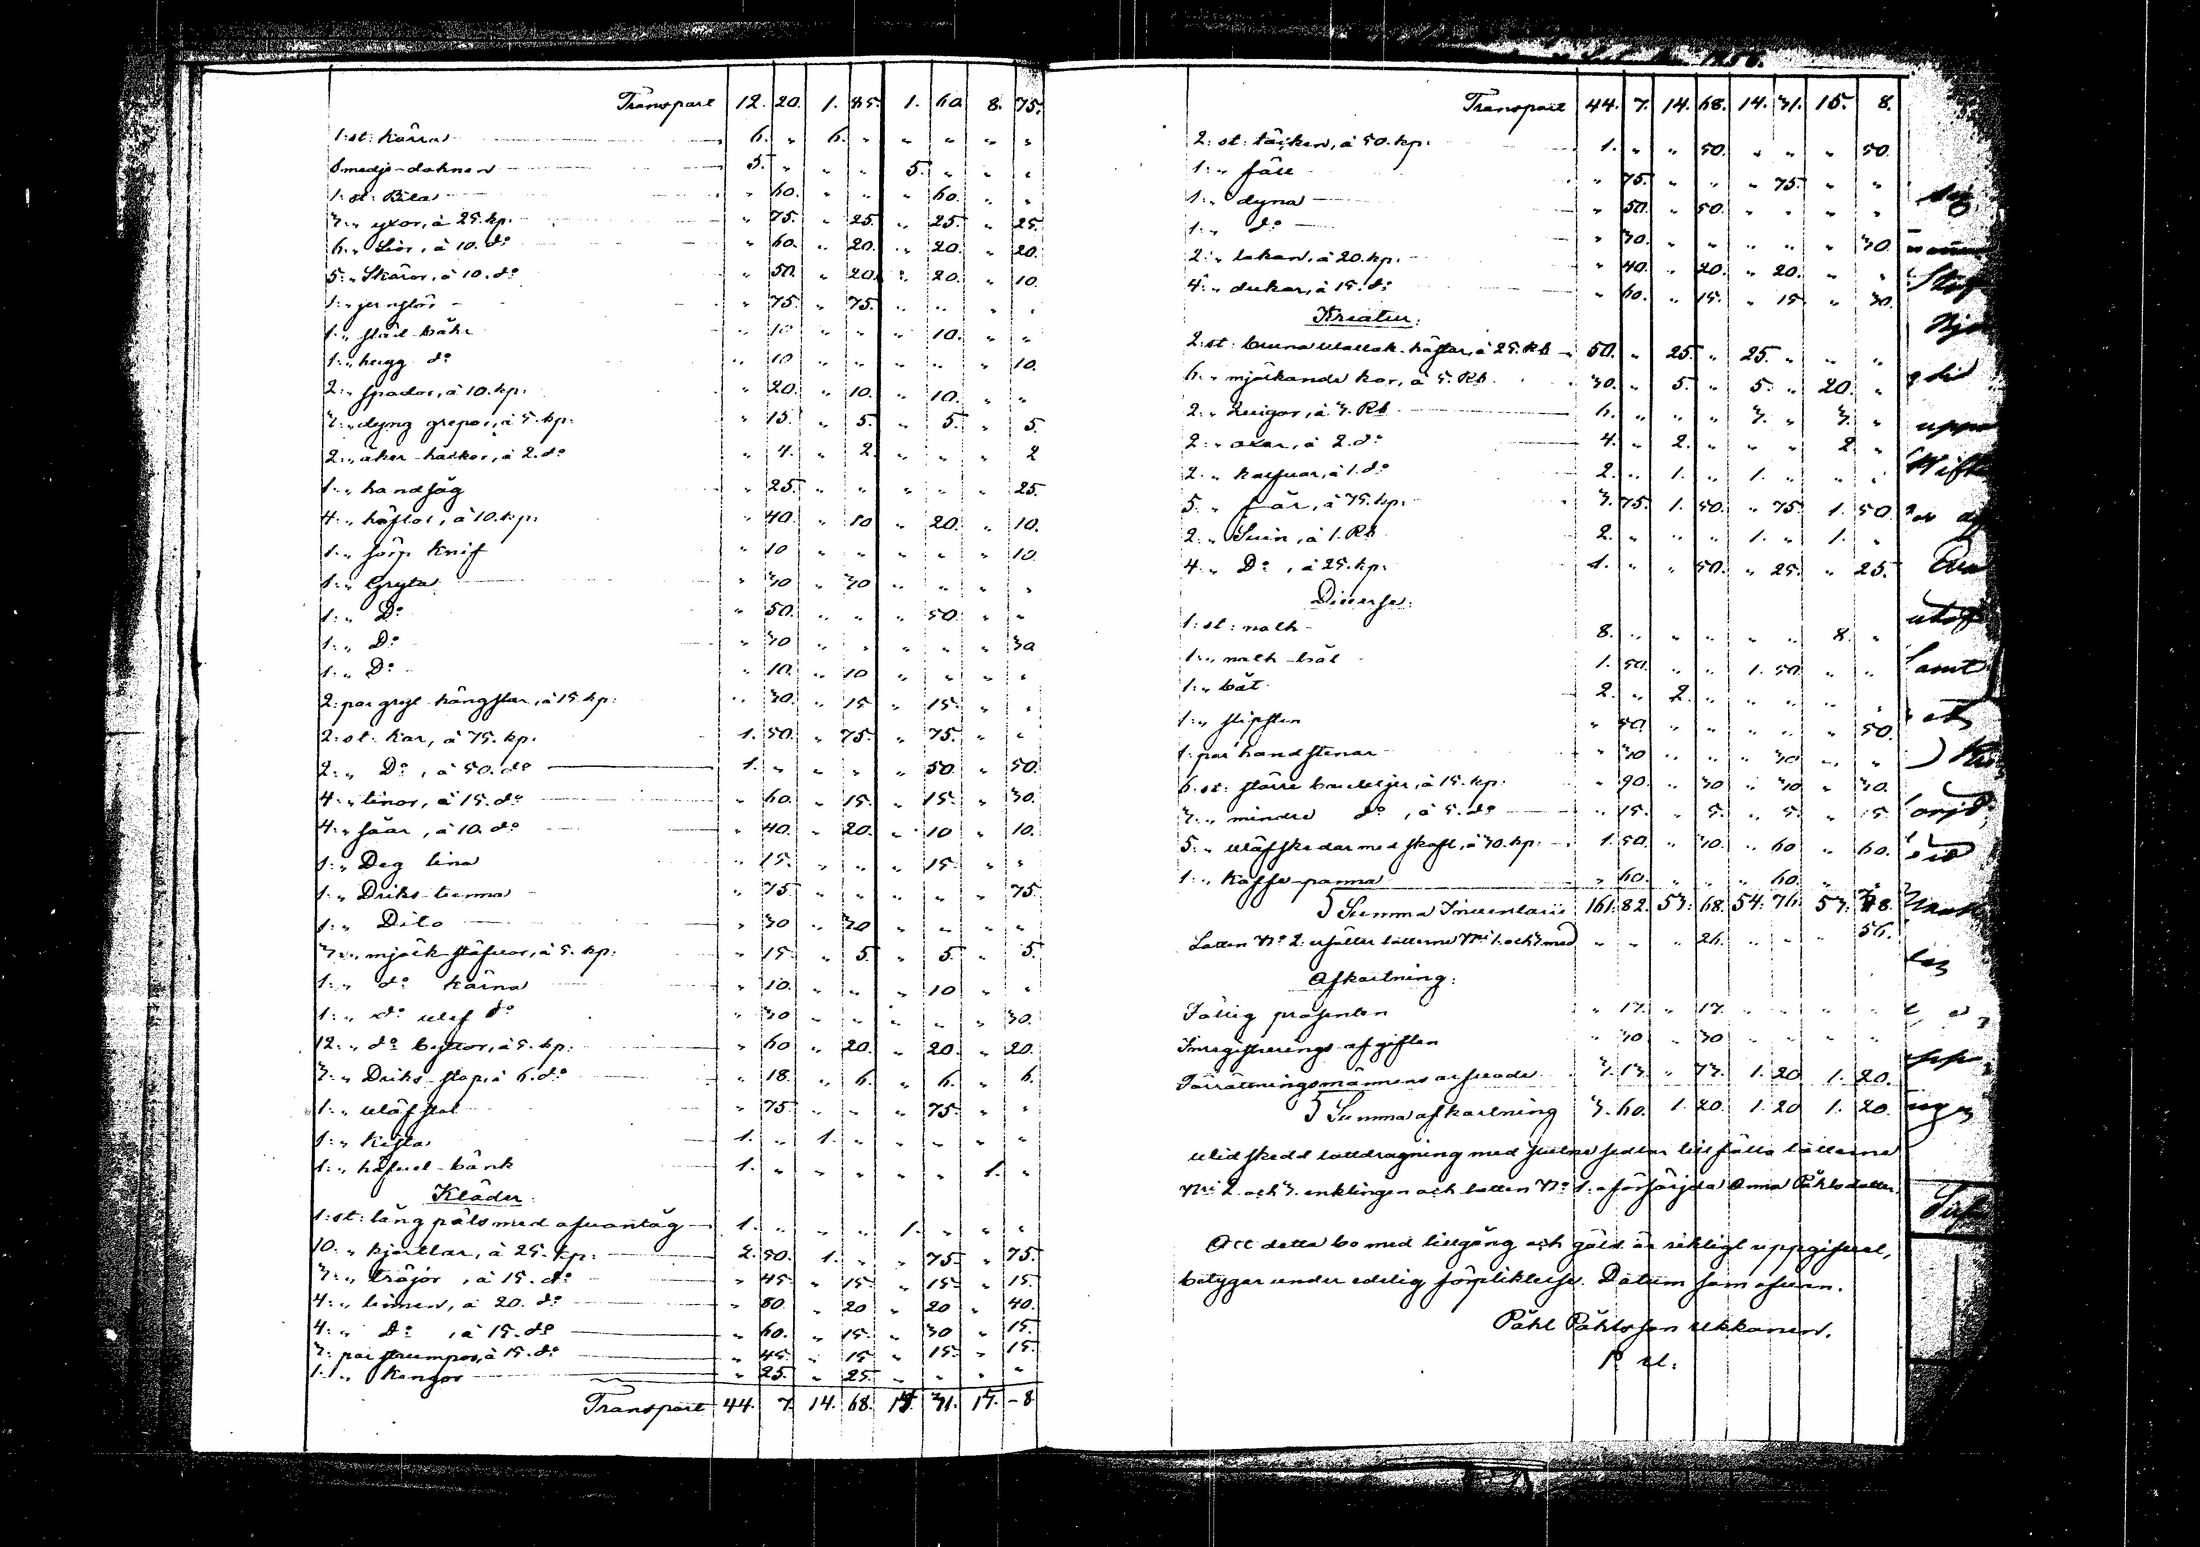 Transport 12. 20. 1. 85. 1. 60. 8. 75.
1: st: kärra 6. " 6. " " " " "
Smedje-dohnen 5. " " " 5. " " "
1: st: Bila " 60. " " " 60. " "
3: " yxor, à 25. kp: " 75. " 25. " 25. " 25.
6: " Liör, à 10. do " 60. " 20. " 20. " 20.
5: " Skäror, à 10. do " 50. " 20. " 20. " 10.
1: " jernstör " 75. " 75. " " " "
1: " " 10 " " " 10. " "
1: " hugg do " 10 " " " " " 10.
2: " spador, à 10. kp: " 20. " 10. " 10. " "
3: " dyng grepor, à 5. kp: " 15. " 5. " 5. " 5
2: " åker-hackor, à 2. do " 4. " 2. " " " 2
1: " handsåg " 25. " " " " " 25.
4: " à 10. kp: " 40. " 10 " 20. " 10.
1: " Knif " 10 " " " " " 10
1: " Gryta " 30 " 30 " " " "
1: " Do " 50. " " " 50. " "
1: " Do " 30 " " " " " 30
1: " Do " 10. " 10 " " " "
2: par gryt-hängslar, à 15 kp: " 30. " 15 " 15. " "
2: st: kar, à 75. kp: 1. 50. " 75. " 75. " "
2: " Do, à 50. do 1. " " " " 50 " 50.
4: " tinor, à 15. do " 60. " 15. " 15. " 30.
4: " såar, à 10. do " 40. " 20. " 10 " 10.
1: " Deg tina " 15. " " " 15. " "
1: " Driks-tunna " 75 " " " " " 75.
1: " Dito " 30 " 30 " " " "
3: " mjölk-stäfvor, à 5. kp: " 15. " 5. " 5. " 5.
1: " do kärna " 10. " " " 10 " "
1: " do do " 30 " " " " " 30.
12: " do byttor, à 5. kp: " 60 " 20. " 20. " 20.
3: " Driks-stop, à 6. do " 18. " 6. " 6. " 6.
1: " väfstol " 75 " " " 75. " "
1: " Kista 1. " 1. " " " " "
1: " häfvel-bänk 1. " " " " " 1. "
Kläder:
1: st: lång päls med 1. " " " 1. " " "
10: " kjortlar, à 25. kp: 2. 50. 1. " " 75. " 75.
3: " tröjor, à 15. do " 45. " 15. " 15. " 15.
4: " linnen, à 20. do " 80. " 20 " 20 " 40.
4: " Do, à 15. do " 60. " 15. " 30 " 15.
3: par strumpor, à 15. do " 45. " 15 " 15. " 15.
1: " Kängor " 25. " 25. " " " "
Transport 44. 7. 14. 68. 14. 31. 15. 8.
Transport 44. 7. 14. 68. 14. 31. 15. 8.
2: st: täcken, à 50. kp: 1. " " 50. " " " 50.
1: " fäll " 75. " " " 75. " "
1: " dyna " 50. " 50. " " " "
1: " do " 30. " " " " " 30.
2: " lakan, à 20. kp: " 40. " 20. " 20. " "
4: " dukar, à 15. do " 60. " 15. " 15 " 30.
Kreatur:
2: st: bruna vallak-hästar, à 25. Rb 50. " 25. " 25. " " "
6: " mjölkande kor, à 5. Rb 30. " 5. " 5. " 20. "
2: " Quigor, à 3. Rb 6. " " " 3. " 3. "
2: " oxar, à 2. do 4. " 2. " " " 2. "
2: " kalfvar, à 1. do 2. " 1. " 1. " " "
5: " får, à 75. kp: 3. 75. 1. 50. " 75. 1. 50.
2: " Svin, à 1. Rb 2. " " " 1. " 1. "
4: " Do, à 25. kp: 1. " " 50. " 25. " 25.
Diverse:
1: st: noth 8. " " " " " 8. "
1: " noth-båt 1. 50. " " 1. 50. " "
1: " båt 2. " 2. " " " " "
1: " slipsten " 50. " " " " " 50.
1: par handstenar " 30 " " " 30 " "
6: st: större bouteljer, à 15. kp: " 90. " 30 " 30 " 30.
3: " mindre do, à 5. do " 15. " 5. " 5. " 5.
5: " väfskedar med skaft, à 30. kp: 1. 50. " 30. " 60 " 60.
1: " Kaffe-panna " 60. " " " 60. " "
Summa Inventarii 161. 82. 53. 68. 54. 76. 53. 38.
Lotten No 2: ersätter lotterne Nri 1. och 3. med " " " 26. " " " 56.
Afkortning:
Fattig procenten " 17. " 17. " " " "
Inregistrerings afgiften " 30 " 30 " " " "
Förrättningsmännens arfvode 3. 13. " 73. 1. 20 1. 20.
Summa afkortning 3. 60. 1. 20. 1. 20 1. 20.
Vid skedd lottdragning med skrefne sedlar tillföllo lotterne
Nri 2. och 3. enklingen och lotten No 1. Anna Påhlsdotter.
Att detta bo med tillgång och gäld är riktigt uppgifvet,
betygar under edelig förpliktelse. Datum som ofvan.
Påhl Påhlsson Ukkonen.